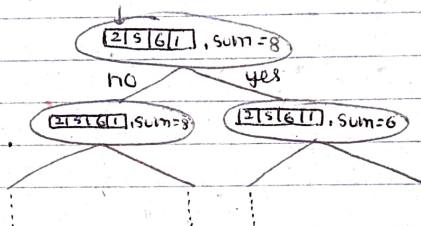 2 5 6 1 , sum=8
no yes
2 5 6 1 , sum=8 2 5 6 1 , sum=6